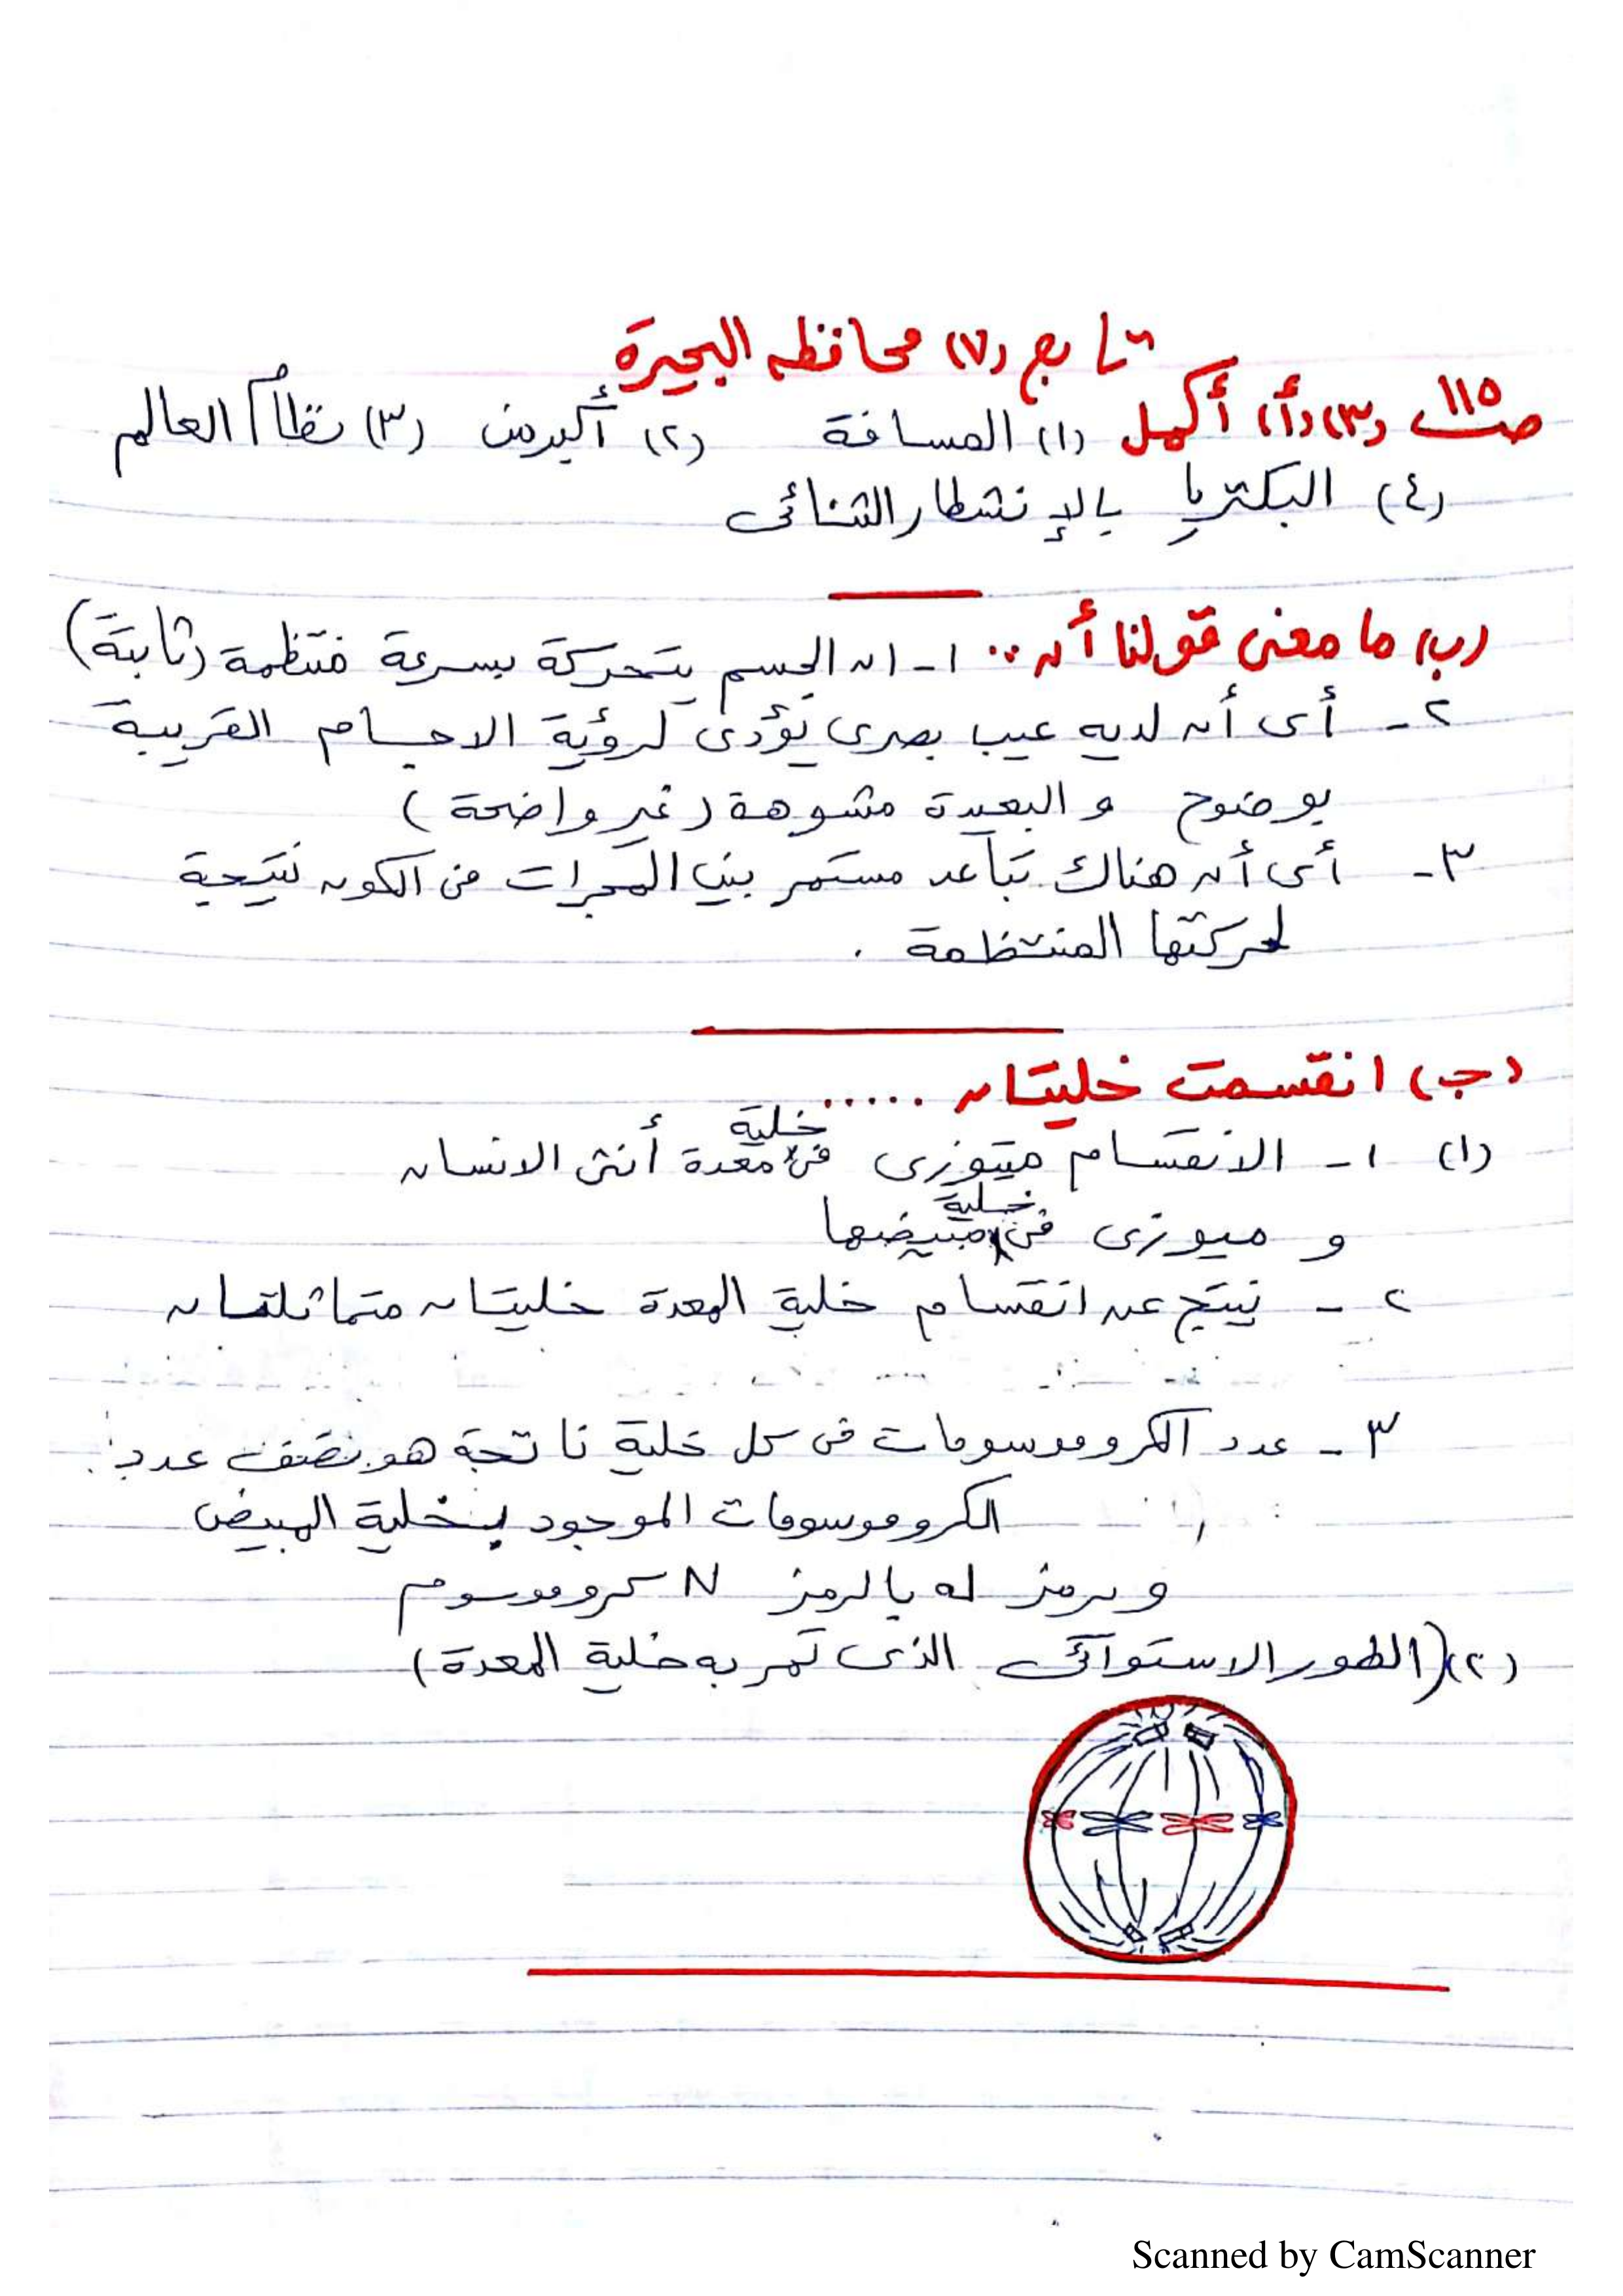 تابع (٧) محافظه البحيرة
صـ ١١٥ (٣) (أ) أكمل (١) المسافة (٢) أكبر من (٣) نظام العالم
(٤) البكتريا بالإنشطار الثنائى
(ب) ما معنى قولنا أن .. ١- ان الجسم يتحرك بسرعة منتظمة (ثابتة)
٢- أى أن لديه عيب بصرى يؤدى لرؤية الاجسام القريبة
بوضوح والبعيدة مشوهة (غير واضحة)
٣- أى أن هناك تباعد مستمر بين المجرات فى الكون نتيجة
لحركتها المنتظمة .
(جـ) انقسمت خليتان .....
(١) ١- الانقسام ميتوزى فى خلية معدة أنثى الانسان
و ميوزى فى خلية مبيضها
٢- ينتج عن انقسام خلية المعدة خليتان متماثلتان
٣- عدد الكروموسومات فى كل خلية ناتجة هو نصف عدد
الكروموسومات الموجود بخلية المبيض
ويرمز له بالرمز N كروموسوم
(٢) (الطور الاستوائى الذى تمر به خلية المعدة)
Scanned by CamScanner